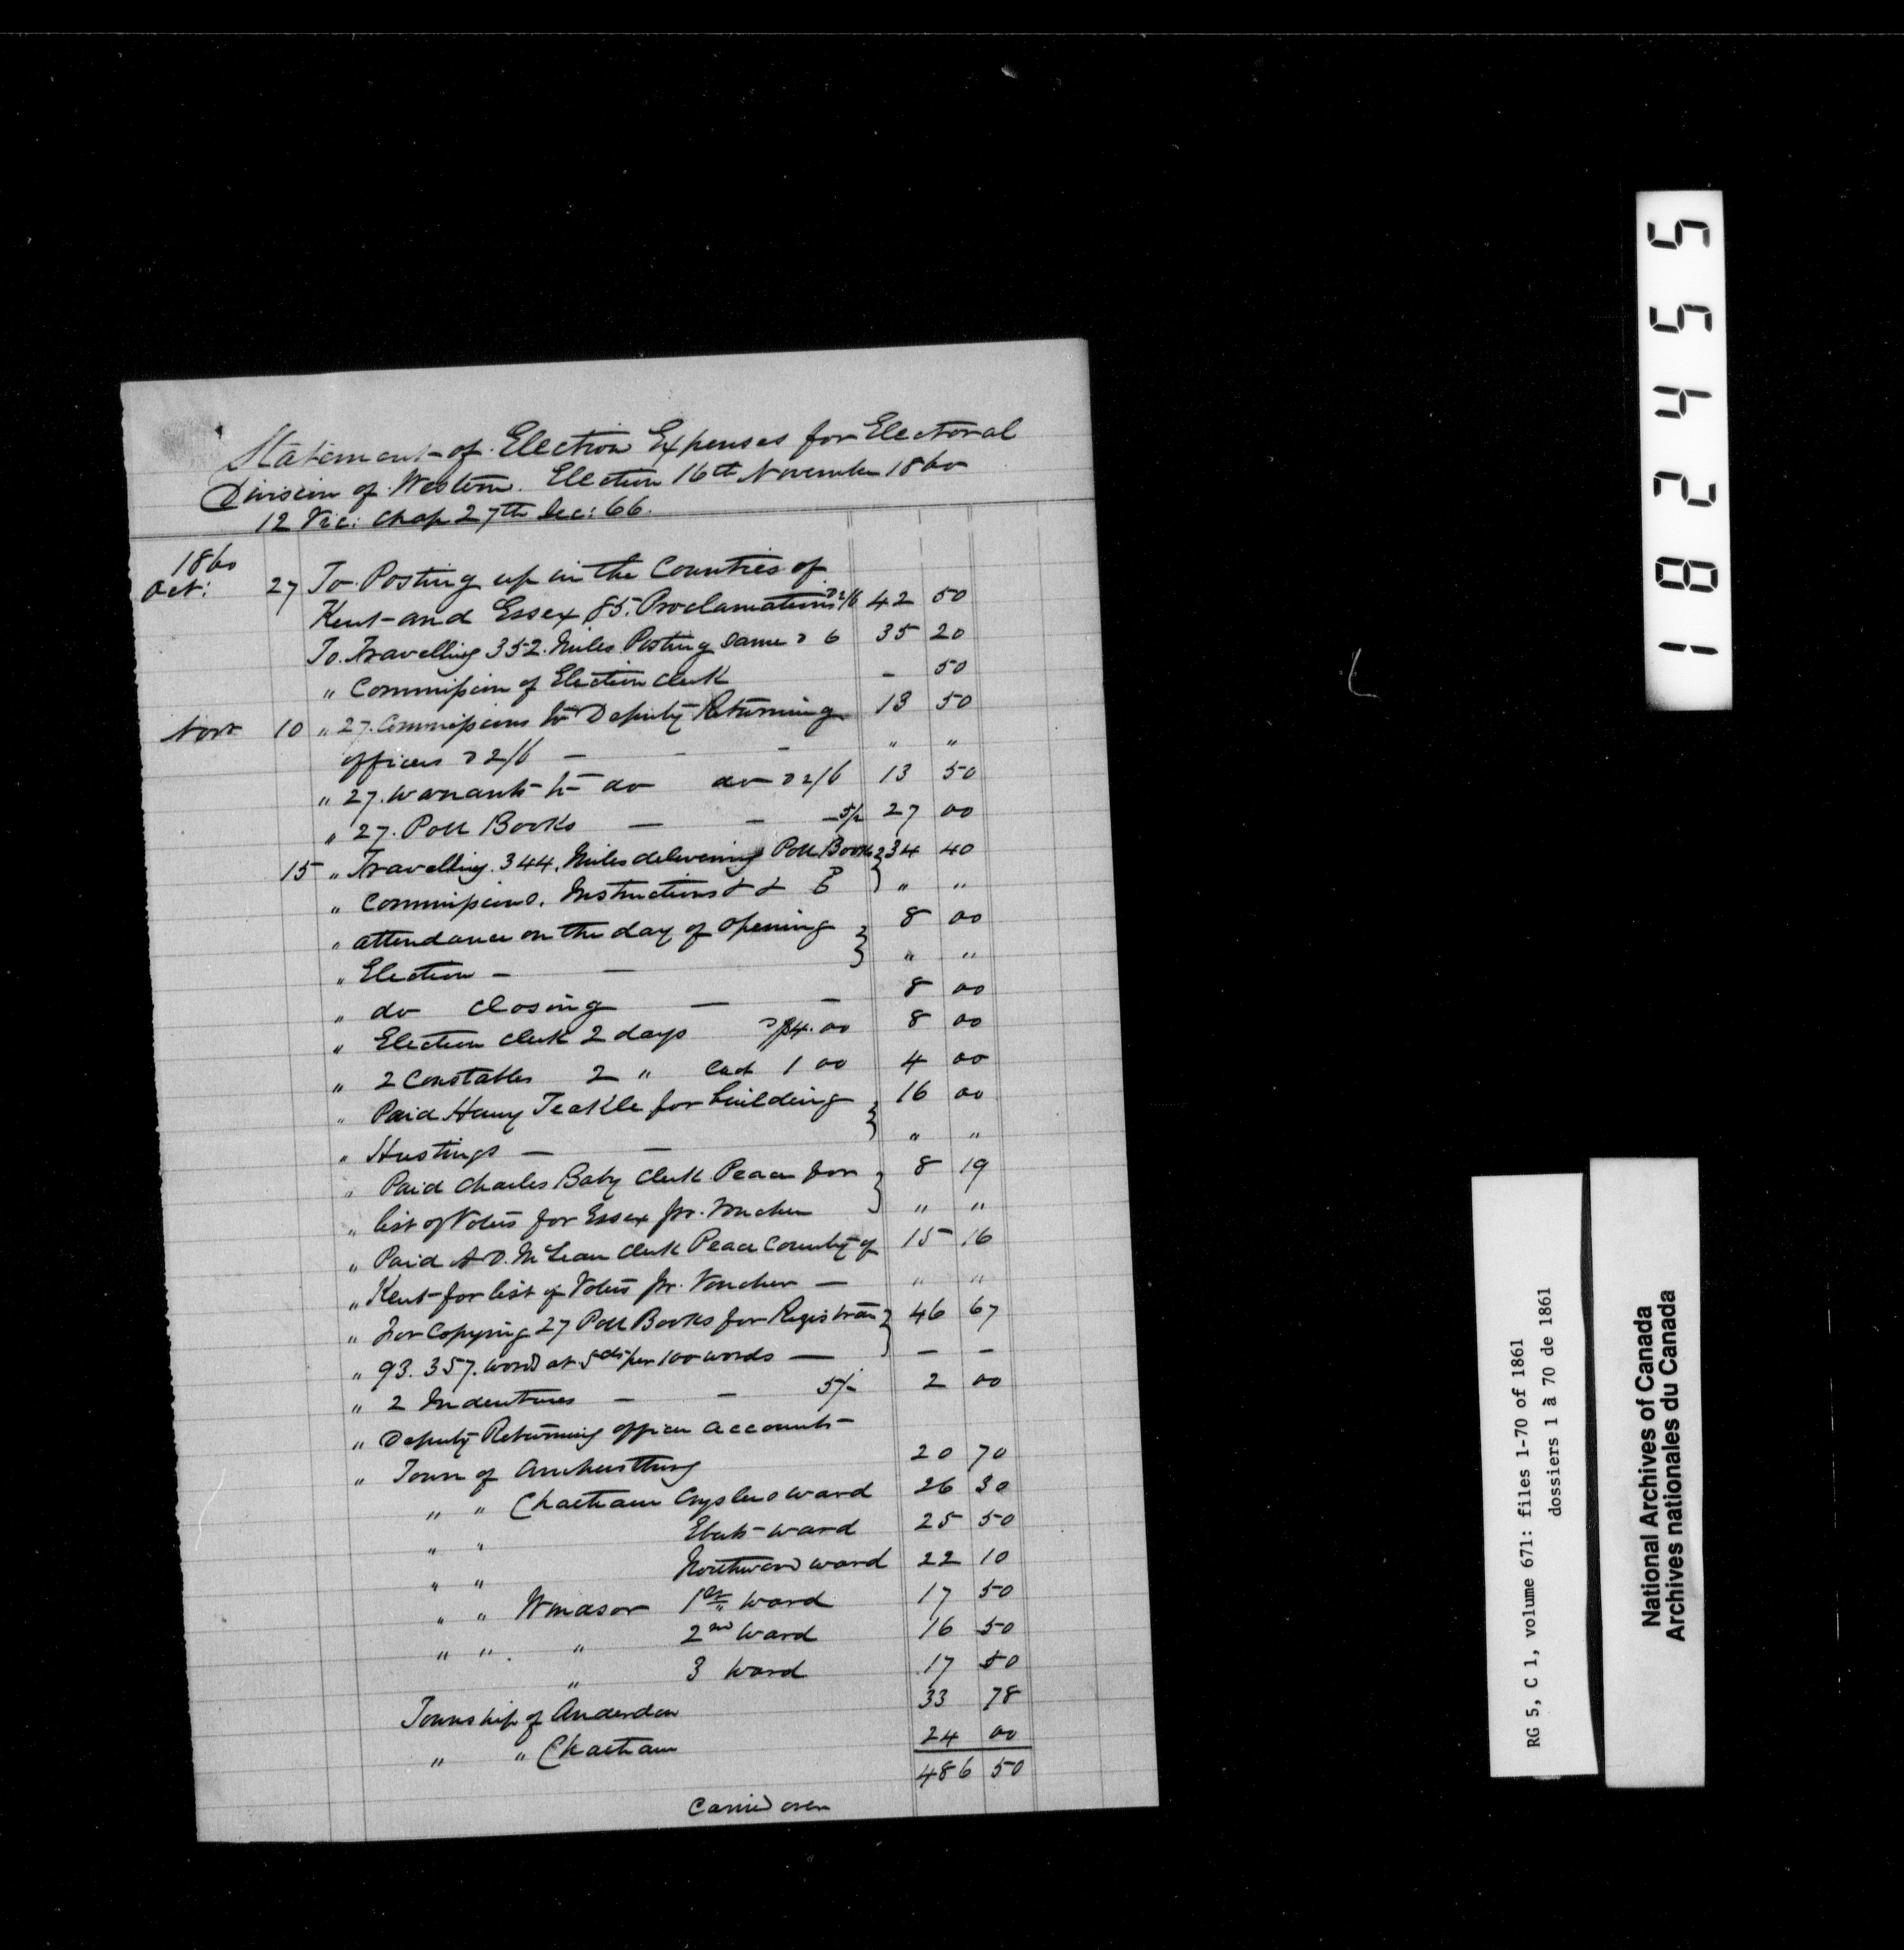 Statement of Election Expenses for Electoral
Division of Western. Election 16th November 1860
12 Vic: Chap 27th Sec: 66.
1860
Oct: 27 To Posting up in the Counties of
Kent and Essex 85. Proclamations @ 2/6 42 50
To Travelling 352. Miles Posting Same @ 6 35 20
" Commission of Election Clerk – 50
Novr 10 " 27. Commissions to Deputy Returning 13 50
officers @ 2/6 – – – " "
" 27. Warrants to do do @ 2/6 13 50
" 27. Poll Books – – – 5/- 27 00
15 " Travelling. 344. Miles delivering Poll Books } 34 40
" Commissions. Instructions & & } " "
" attendance on the day of opening } 8 00
" Election – – } " "
" do Closing – – 8 00
" Election Clerk 2 days @ $4. 00 8 00
" 2 Constables 2 " Each 1 00 4 00
" Paid Henry Teakle for building } 16 00
" Hustings – – } " "
" Paid Charles Baby Clerk Peace for } 8 19
" list of Voters for Essex pr. Voucher } " "
" Paid A D. McLean Clerk Peace County of 15 16
" Kent for list of Voters pr. Voucher – " "
" For Copying 27 Poll Books for Registrar } 46 67
" 93. 357. words at 5cts per 100 words – } – –
" 2 Indentures – – 5/- 2 00
" Deputy Returning officer accounts –
" Town of Amherstburg 20 70
" " Chatham Cryslers ward 26 30
" " Eberts ward 25 50
" " Northwood ward 22 10
" " Windsor 1st ward 17 50
" " " 2nd ward 16 50
" 3 ward 17 50
Township of Anderdon 33 78
" " Chatham 24 00
486 50
Carried over
182455
RG 5, C 1, volume 671: files 1-70 of 1861
dossiers 1 à 70 de 1861
National Archives of Canada
Archives nationales du Canada